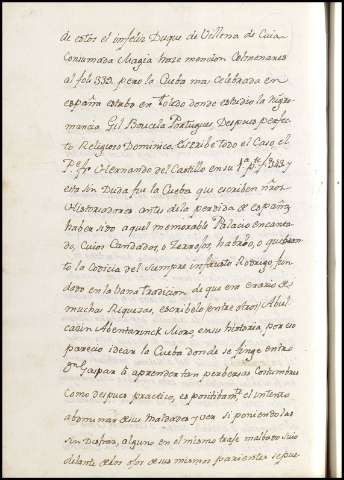 de estos el infelix Duque de Villena de Cuia
Consumada Magia hase mension Colmenares
al fol. 339. pero la Cueba mas Celebrada en
españa estubo en Toledo donde estudio la Nigro-
mancia Gil Boucela Portugues, Despues perfec-
to Religioso Dominico, escribe todo el Caso, el
P.e fr. Hernando del Castillo en su 1.a p.te f. 348. y
esta sin Duda fue la Cueba que escriben ños.
Historiadores antes dela perdida de españa
haber sido aquel memorable Palacio encanta-
do, Cuios Candados, o Zerrojos, habrio, o quebran-
to la Codicia del siempre infausto Rodrigo, fun-
dado en la bana tradicion de que era erario de
muchas Riquezas, escribelo (entre otros) Abul
cacin Abentarinck Moro, en su historia, por eso
parecio idear la Cueba donde se finge entro
Dn. Gaspar â aprender tan perbersas Costumbres
Como despues practico, es positibam.te el intento
abominar de sus maldades, y ver si poniendolas
sin Disfras, alguno en el mismo traje malbado suio
delante delos ojos de sus mismos parientes se pue-